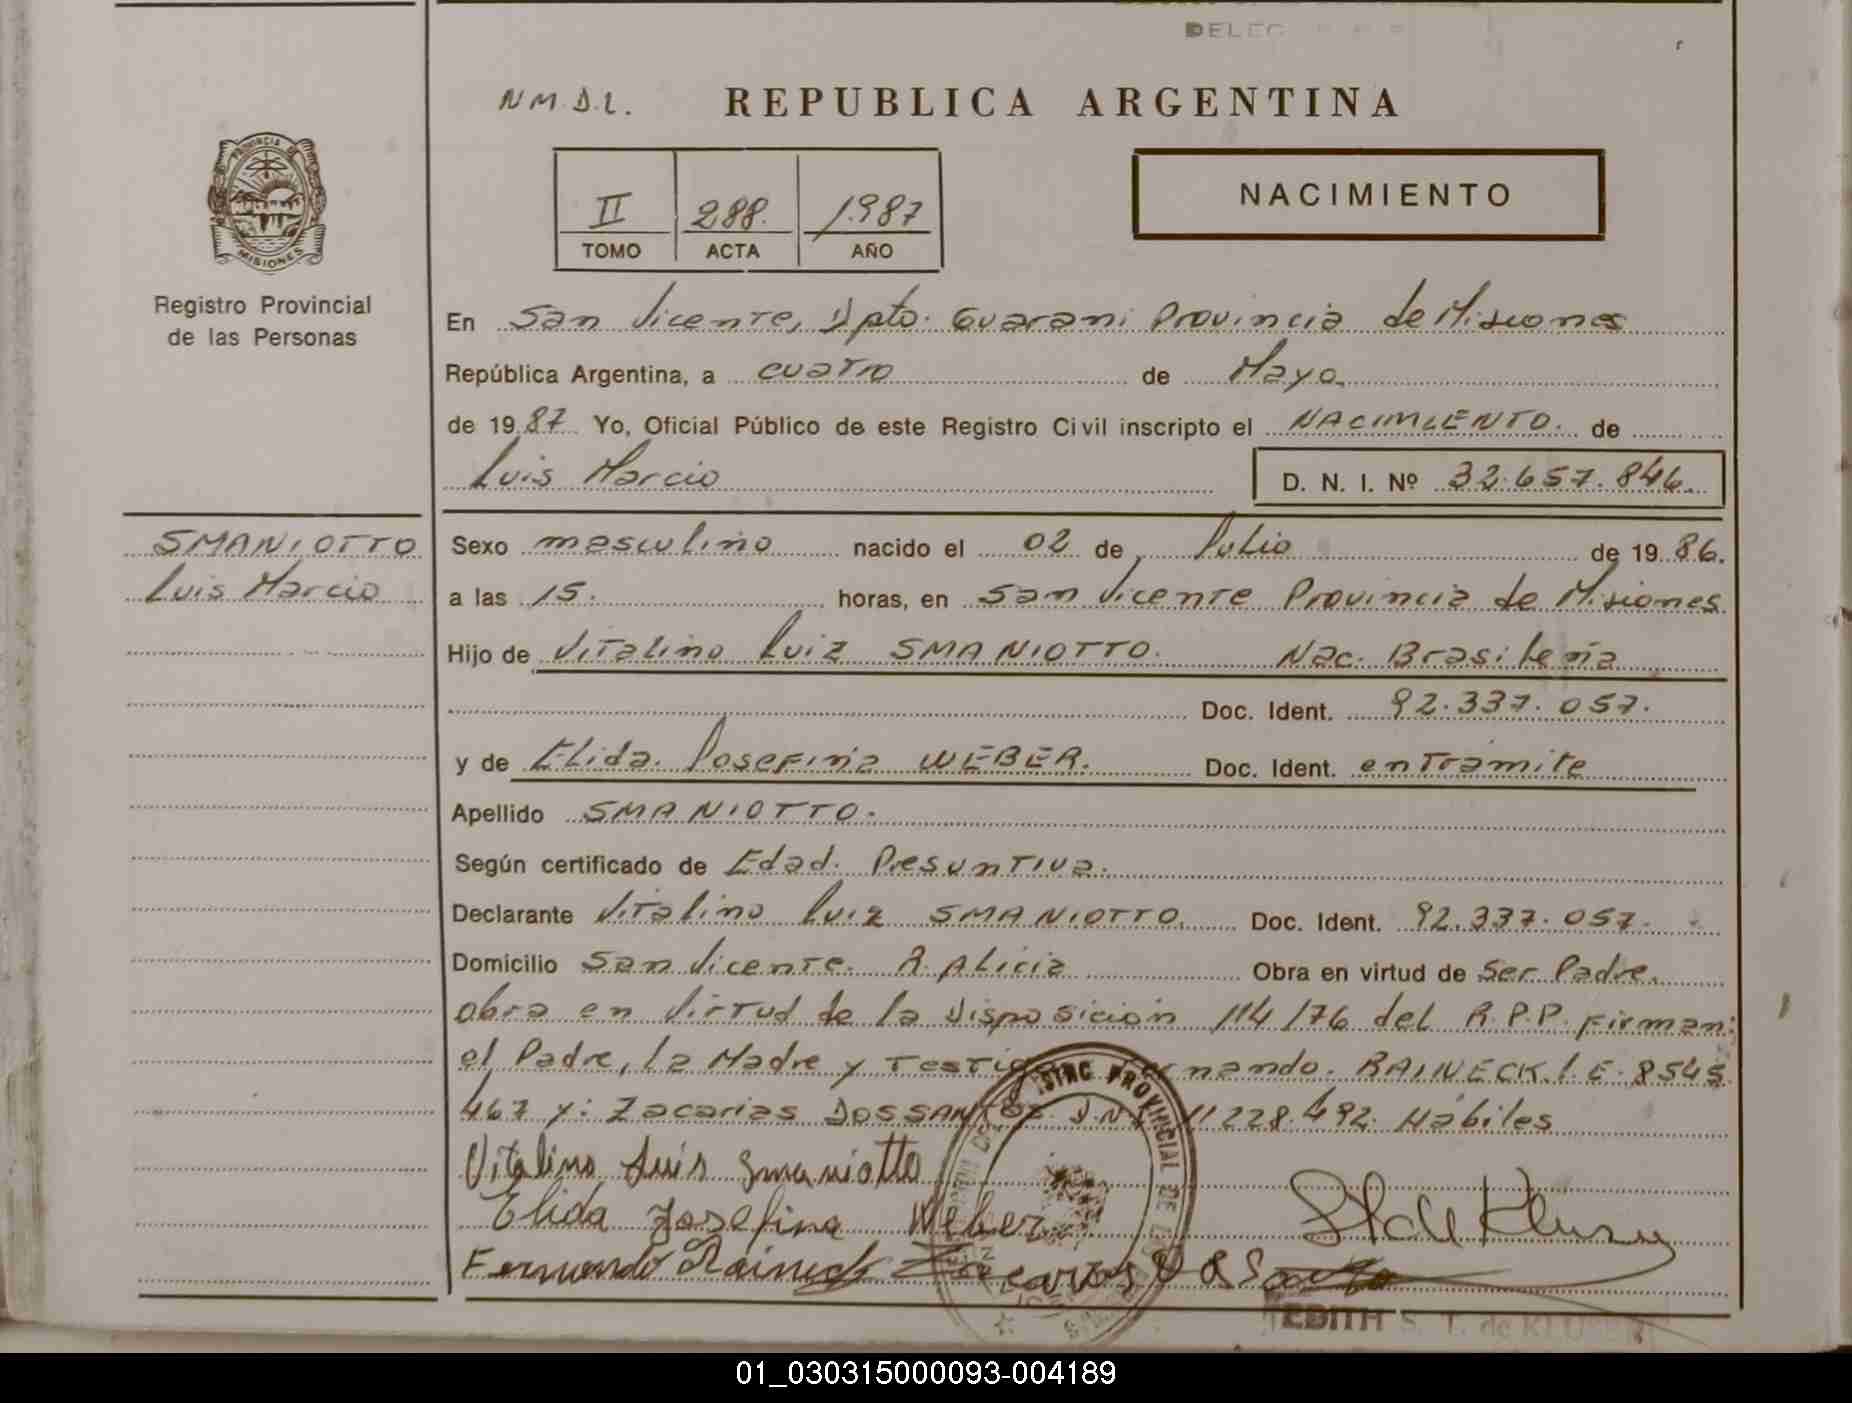 DELEG
N.M.D.L. REPUBLICA ARGENTINA
PROVINCIA DE
MISIONES
Registro Provincial
de las Personas
II 288. 1.987
TOMO ACTA AÑO
NACIMIENTO
En San Vicente, Dpto. Guarani Provincia de Misiones
República Argentina, a cuatro de Mayo
de 19 87 Yo, Oficial Público de este Registro Civil inscripto el NACIMIENTO. de
Luis Marcio D. N. I. Nº 32.657.846.
SMANIOTTO
Luis Marcio
Sexo masculino nacido el 02 de Julio de 19 86.
a las 15. horas, en San Vicente Provincia de Misiones
Hijo de Vitalino Luiz SMANIOTTO. Nac. Brasileña
Doc. Ident. 92.337.057.
y de Elida Josefina WEBER. Doc. Ident. en Tramite
Apellido SMANIOTTO.
Según certificado de Edad. Presuntiva.
Declarante Vitalino Luiz SMANIOTTO. Doc. Ident. 92.337.057.
Domicilio San Vicente. R. Alicia Obra en virtud de Ser Padre.
obra en Virtud de la Disposición 114/76 del R.P.P. Firman:
el Padre, la Madre y Testig nando. RAINECK L.E. 8545
467 y: Zacarias DOSSANTOS D.N.I. 11 228.492. Hábiles
Vitalino Luis Smaniotto
Elida Josefina Weber
Fernando Raineck
EDITH S. T. de KLUSEN
01_030315000093-004189